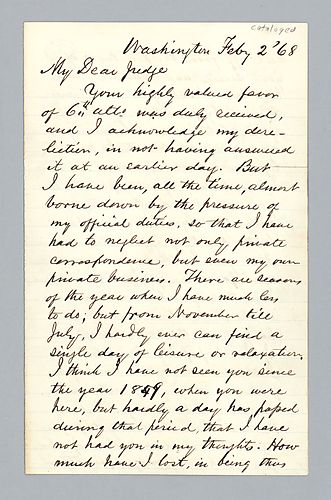 cataloged
Washington Feby 2d '68
My Dear Judge
Your highly valued favor
of 6th ulto. was duly received,
and I acknowledge my dere-
liction, in not having answered
it at an earlier day. But
I have been, all the time, almost
borne down by the pressure of
my official duties, so that I have
had to neglect not only private
correspondence, but even my own
private business. There are seasons
of the year when I have much less
to do; but from November till
July, I hardly ever can find a
single day of leisure or relaxation.
I think I have not seen you since
the year 1859, when you were
here, but hardly a day has passed
during that period, that I have
not had you in my thoughts. How
much have I lost, in being thus